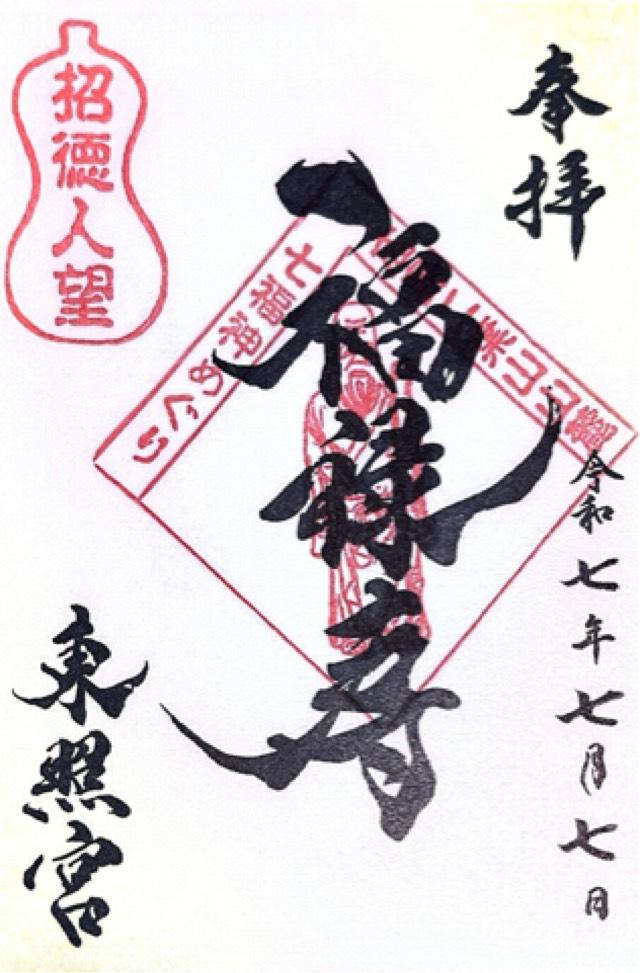 奉拝
令和七年七月七日
福禄寿
七福神めぐり
招徳人望
東照宮